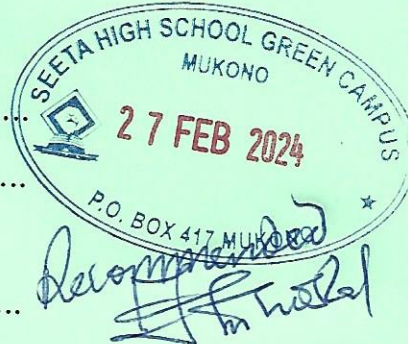 SEETA HIGH SCHOOL GREEN CAMPUS
MUKONO
27 FEB 2024
P.O. BOX 417 MUKONO
Recommended